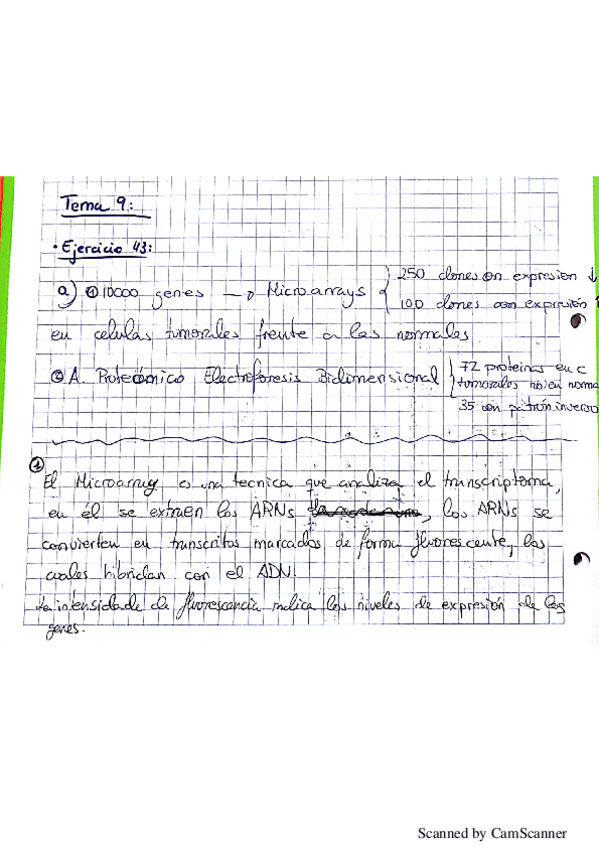 Tema 9:
• Ejercicio 43:
a) ① 10000 genes → Microarrays { 250 clones en expresion ↓
100 clones con expresion ↑
en celulas tumorales frente a las normales
② A. Proteómico Electroforesis Bidimensional { 72 proteinas en c
tumorales no en norma
35 con patrón inverso
①
El Microarray es una tecnica que analiza el transcriptoma,
en él se extraen los ARNs, los ARNs se
convierten en transcritos marcados de forma fluorescente, los
cuales hibridan con el ADN.
La intensidade de fluorescencia indica los niveles de expresión de los
genes.
Scanned by CamScanner